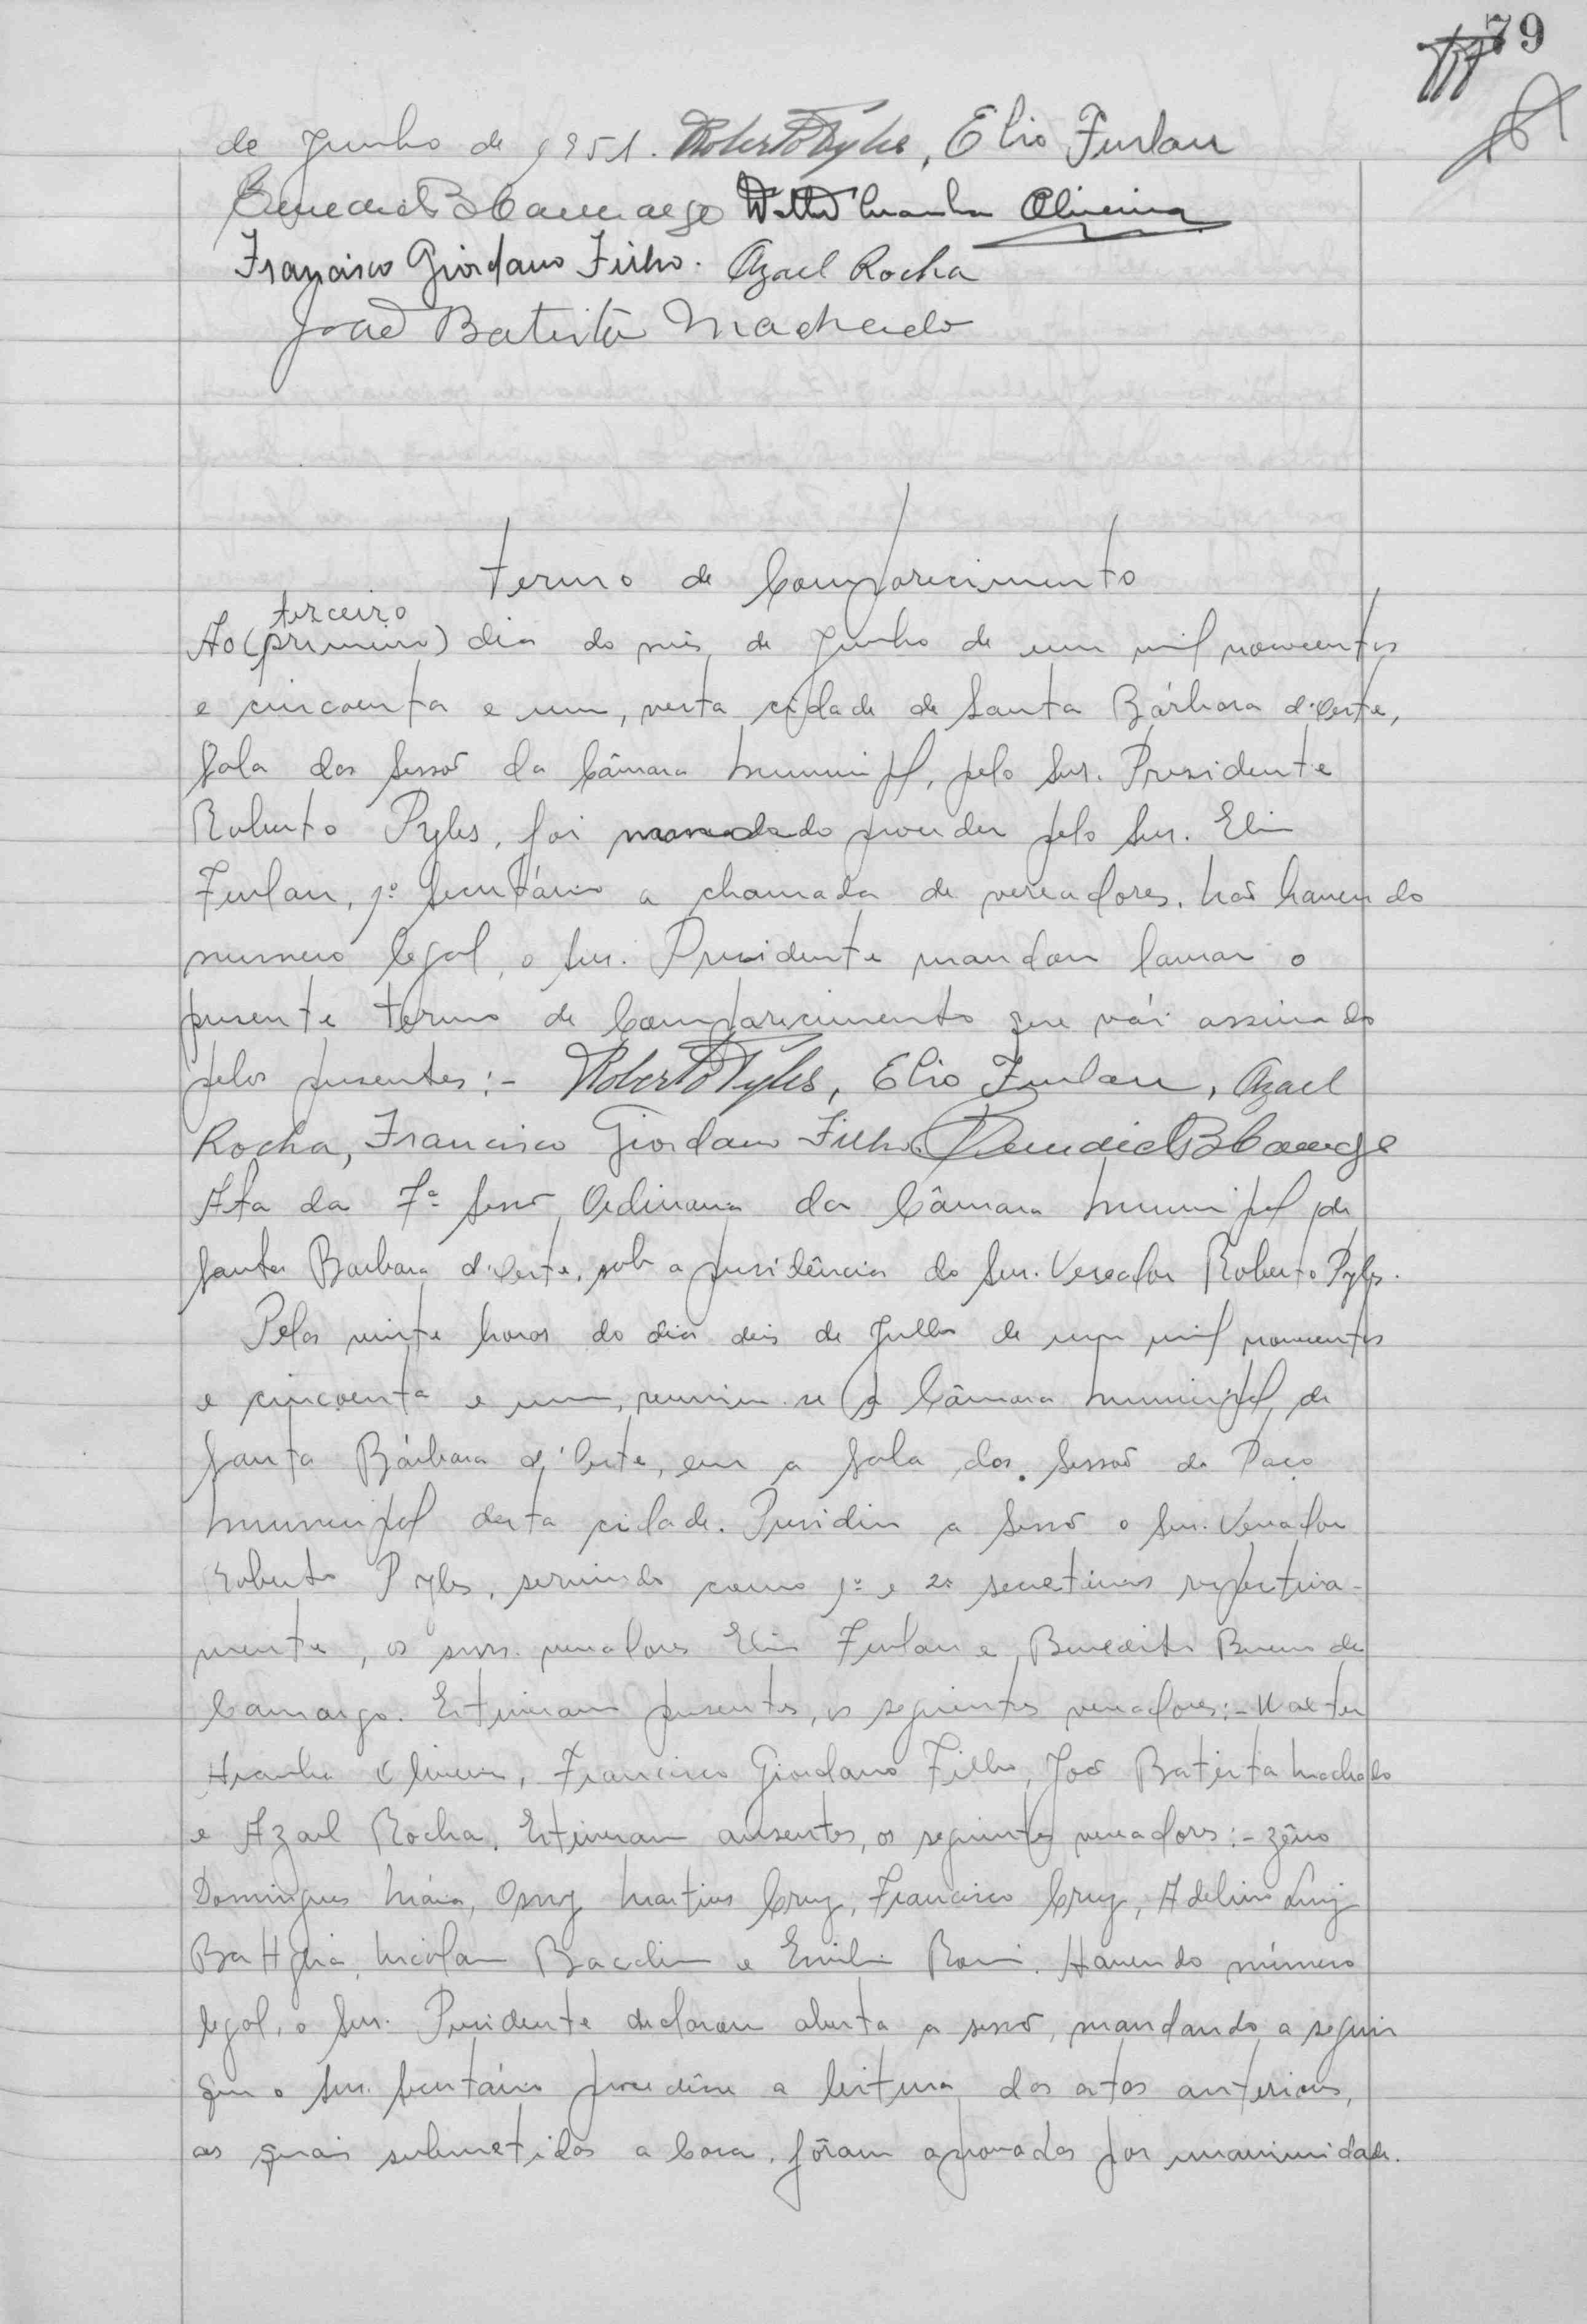 79
de Junho de 1951. Roberto Pyles, Elio Furlan
Benedicto B Camargo Walter Aranha Oliveira
Francisco Giordano Filho. Azael Rocha
João Batista Machado
Termo de Comparecimento
terceiro
Ao (primeiro) dia do mês de Junho de um mil novecentos
e cincoenta e um, nesta cidade de Santa Bárbara d'Oeste,
Sala das Sessões da Câmara Municipal, pelo Snr. Presidente
Roberto Pyles, foi mandado proceder pelo Snr. Elio
Furlan, 1º Secretário a chamada de vereadores. Não havendo
numero legal, o Snr. Presidente mandou lavrar o
presente termo de Comparecimento que vái assinado
pelos presentes:- Roberto Pyles, Elio Furlan, Azael
Rocha, Francisco Giordano Filho, Benedicto B Camargo
Ata da 7ª Sessão Ordinaria da Câmara Municipal de
Santa Barbara d'Oeste, sob a presidência do Snr. Vereador Roberto Pyles.
Pelas vinte horas do dia dois de Julho de um mil novecentos
e cincoenta e um, reuniu-se a Câmara Municipal de
Santa Bárbara d'Oeste, em a Sala das Sessões do Paço
Municipal desta cidade. Presidiu a Sessão o Snr. Vereador
Roberto Pyles, servindo como 1º e 2º secretários respectiva-
mente, os snrs. vereadores Elio Furlan e Benedito Bueno de
Camargo. Estiveram presentes, os seguintes vereadores:- Walter
Aranha Oliveira, Francisco Giordano Filho, João Batista Machado
e Azael Rocha. Estiveram ausentes, os seguintes vereadores:- Zêno
Domingues Máia, Osny Martins Cruz, Francisco Cruz, Adelino Luiz
Battglia, Nicolau Bacclin e Emilio Romi. Havendo número
legal, o Snr. Presidente declarou aberta a sessão, mandando a seguir
que o Snr. Secretário procedêsse a leitura das atas anteriores,
as quais submetidas a Casa, fôram aprovadas por unanimidade.